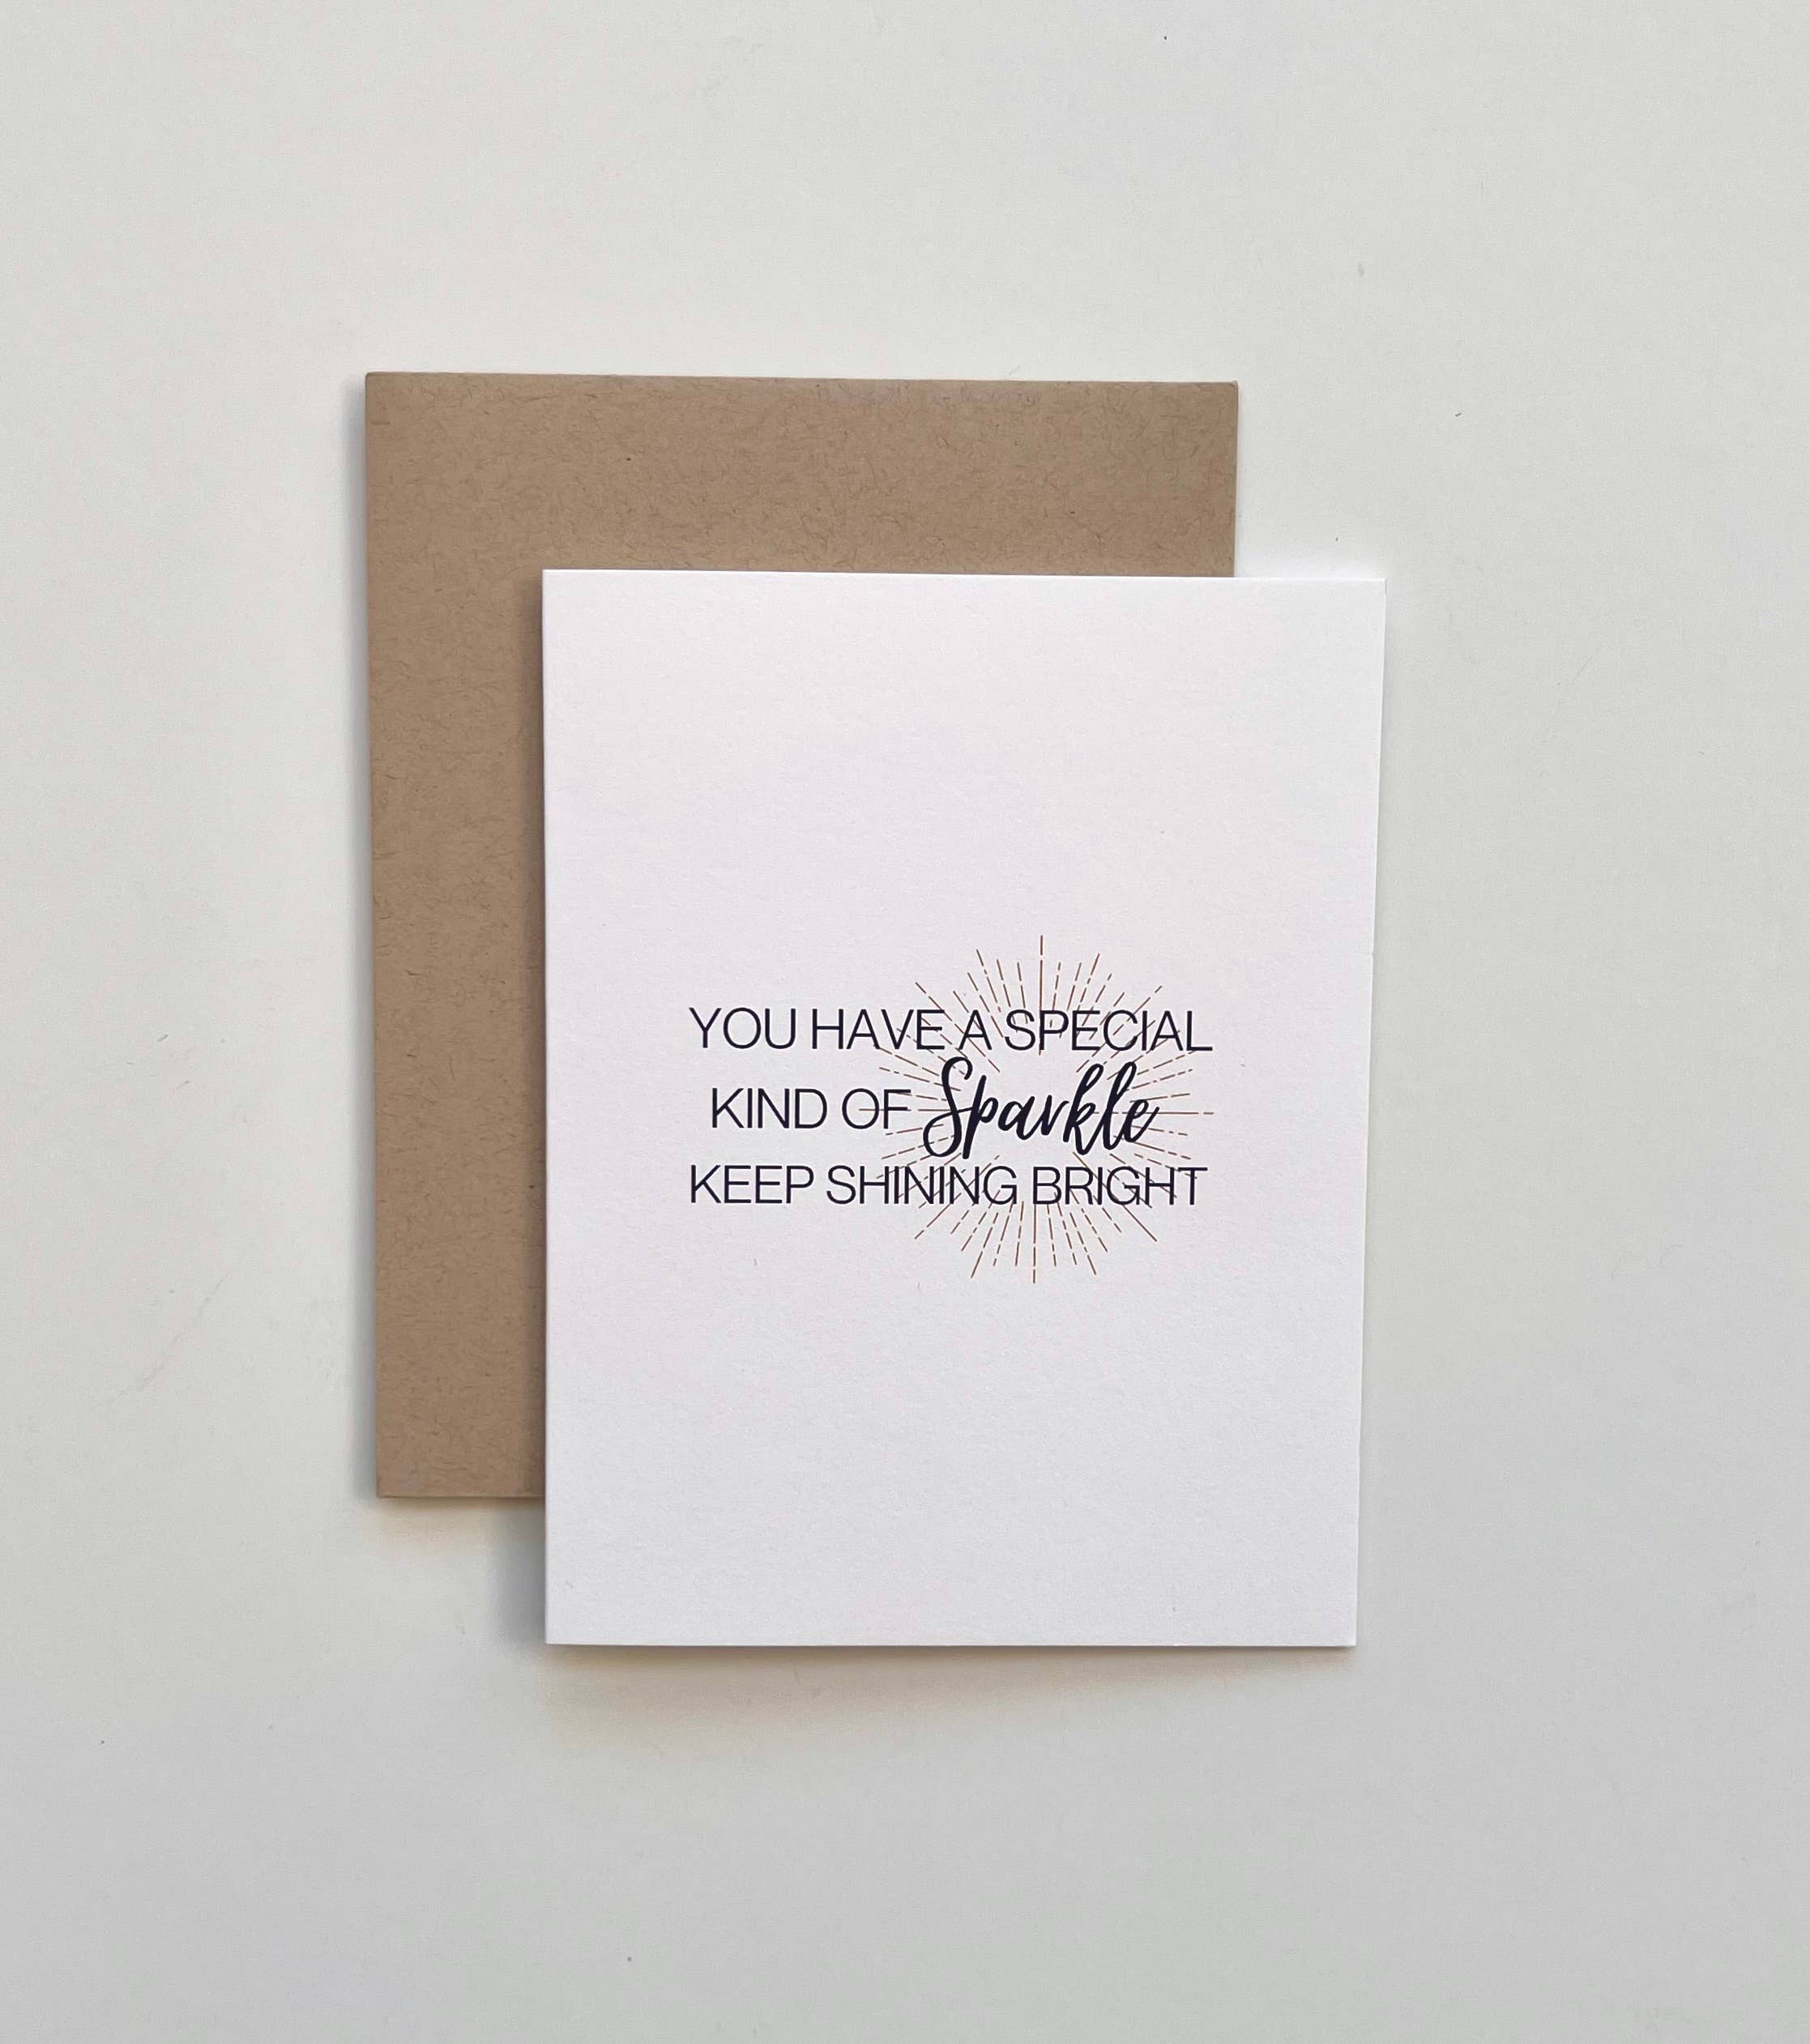 YOU HAVE A SPECIAL
KIND OF Sparkle
KEEP SHINING BRIGHT